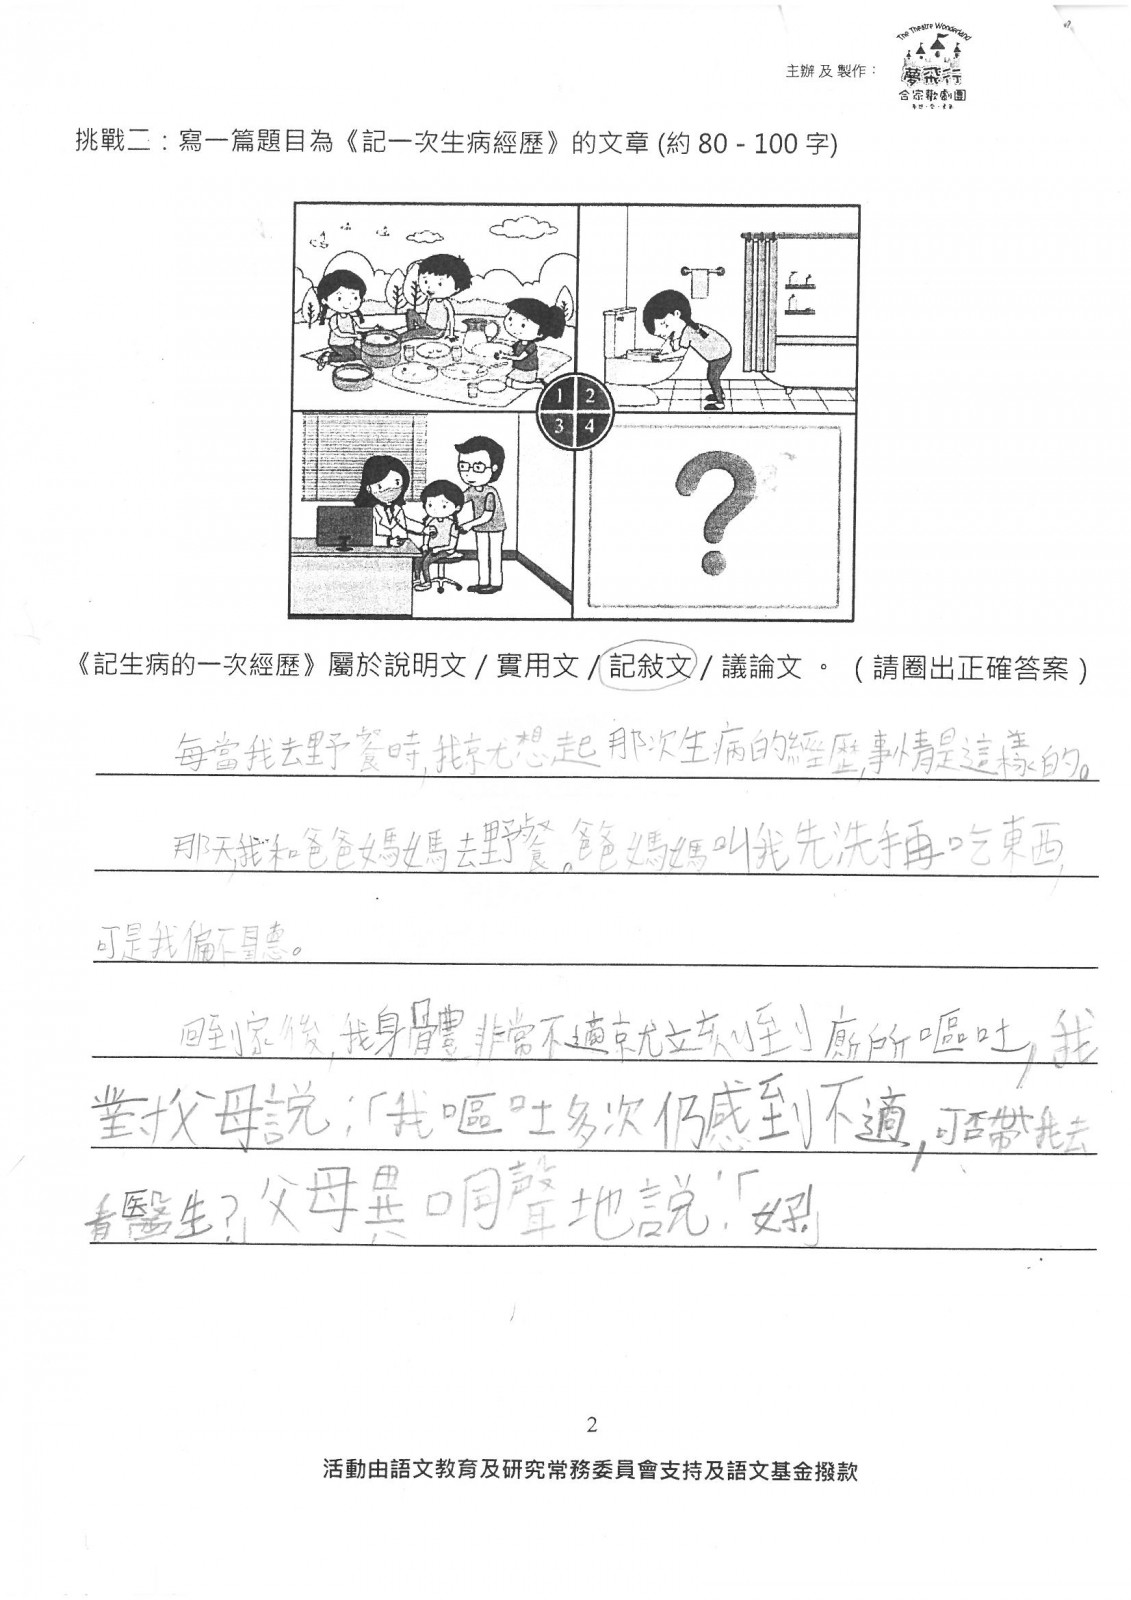 The Theatre Wonderland
主辦 及 製作：
夢飛行
合家歡劇團
挑戰二：寫一篇題目為《記一次生病經歷》的文章 (約 80 - 100 字)
1 2
3 4
?
《記生病的一次經歷》屬於說明文 / 實用文 / 記敍文 / 議論文 。（請圈出正確答案）
每當我去野餐時,我就想起那次生病的經歷,事情是這樣的。
那天,我和爸爸媽媽去野餐。爸爸媽媽叫我先洗手再吃東西,
可是我偏不聽。
回到家後,我身體非常不適就立刻到廁所嘔吐,我
對父母說:「我嘔吐多次仍感到不適,可否帶我去
看醫生?」父母異口同聲地說:「好!」
2
活動由語文教育及研究常務委員會支持及語文基金撥款